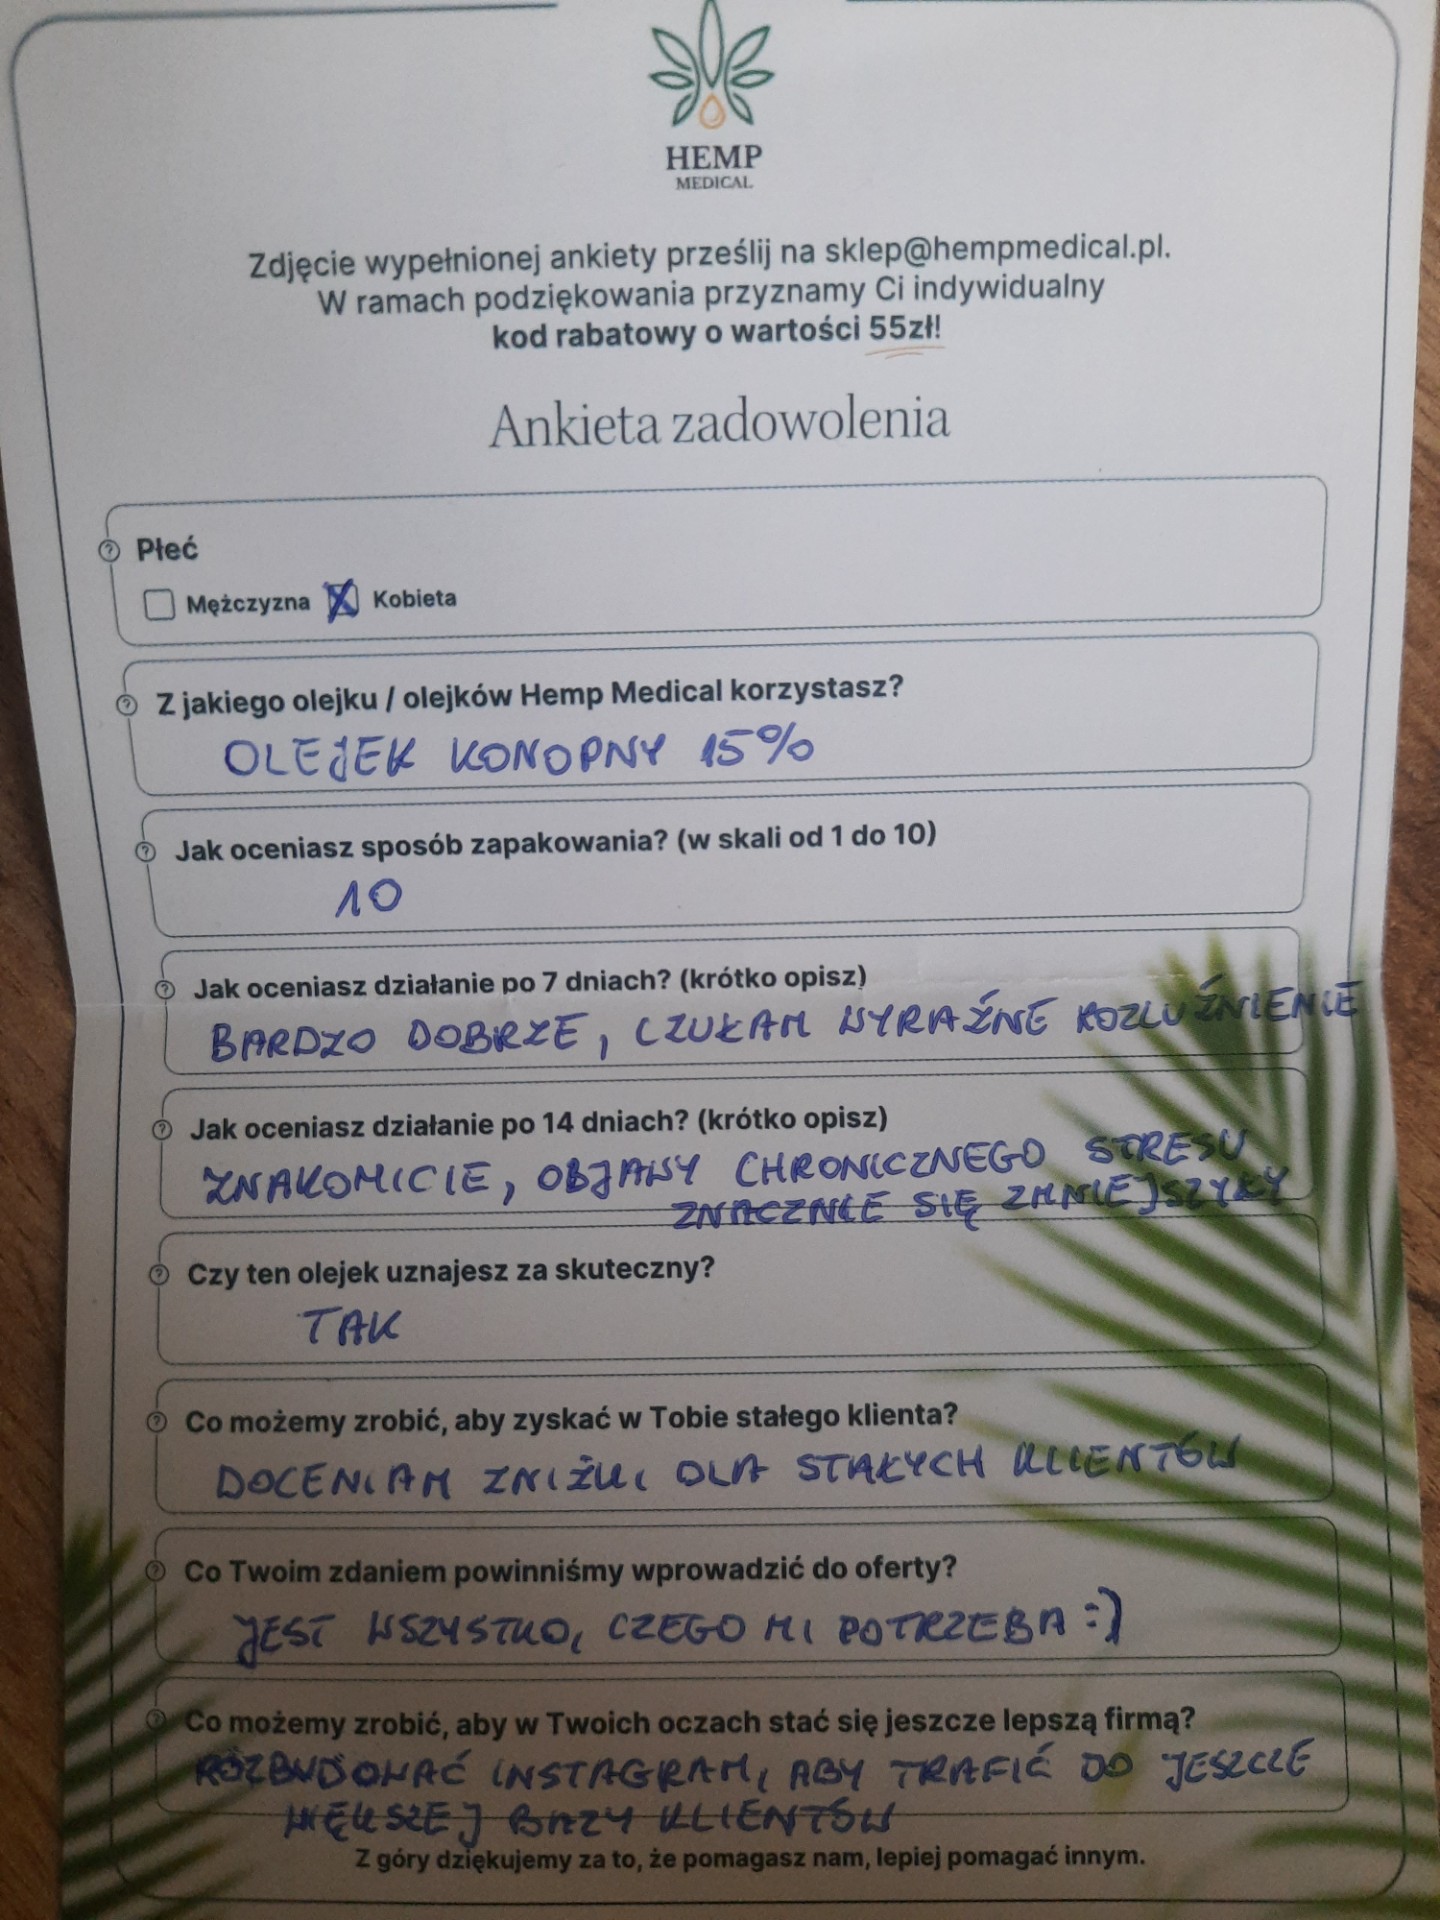 HEMP
MEDICAL
Zdjęcie wypełnionej ankiety prześlij na sklep@hempmedical.pl.
W ramach podziękowania przyznamy Ci indywidualny
kod rabatowy o wartości 55zł!
Ankieta zadowolenia
Płeć
Mężczyzna X Kobieta
Z jakiego olejku / olejków Hemp Medical korzystasz?
OLEJEK KONOPNY 15%
Jak oceniasz sposób zapakowania? (w skali od 1 do 10)
10
Jak oceniasz działanie po 7 dniach? (krótko opisz)
BARDZO DOBRZE, CZUŁAM WYRAŹNE ROZLUŹNIENIE
Jak oceniasz działanie po 14 dniach? (krótko opisz)
ZNAKOMICIE, OBJAWY CHRONICZNEGO STRESU
ZNACZNIE SIĘ ZMNIEJSZYŁY
Czy ten olejek uznajesz za skuteczny?
TAK
Co możemy zrobić, aby zyskać w Tobie stałego klienta?
DOCENIAM ZNIŻKI DLA STAŁYCH KLIENTÓW
Co Twoim zdaniem powinniśmy wprowadzić do oferty?
JEST WSZYSTKO, CZEGO MI POTRZEBA :)
Co możemy zrobić, aby w Twoich oczach stać się jeszcze lepszą firmą?
ROZBUDOWAĆ INSTAGRAM, ABY TRAFIĆ DO JESZCZE
WIĘKSZEJ BAZY KLIENTÓW
Z góry dziękujemy za to, że pomagasz nam, lepiej pomagać innym.